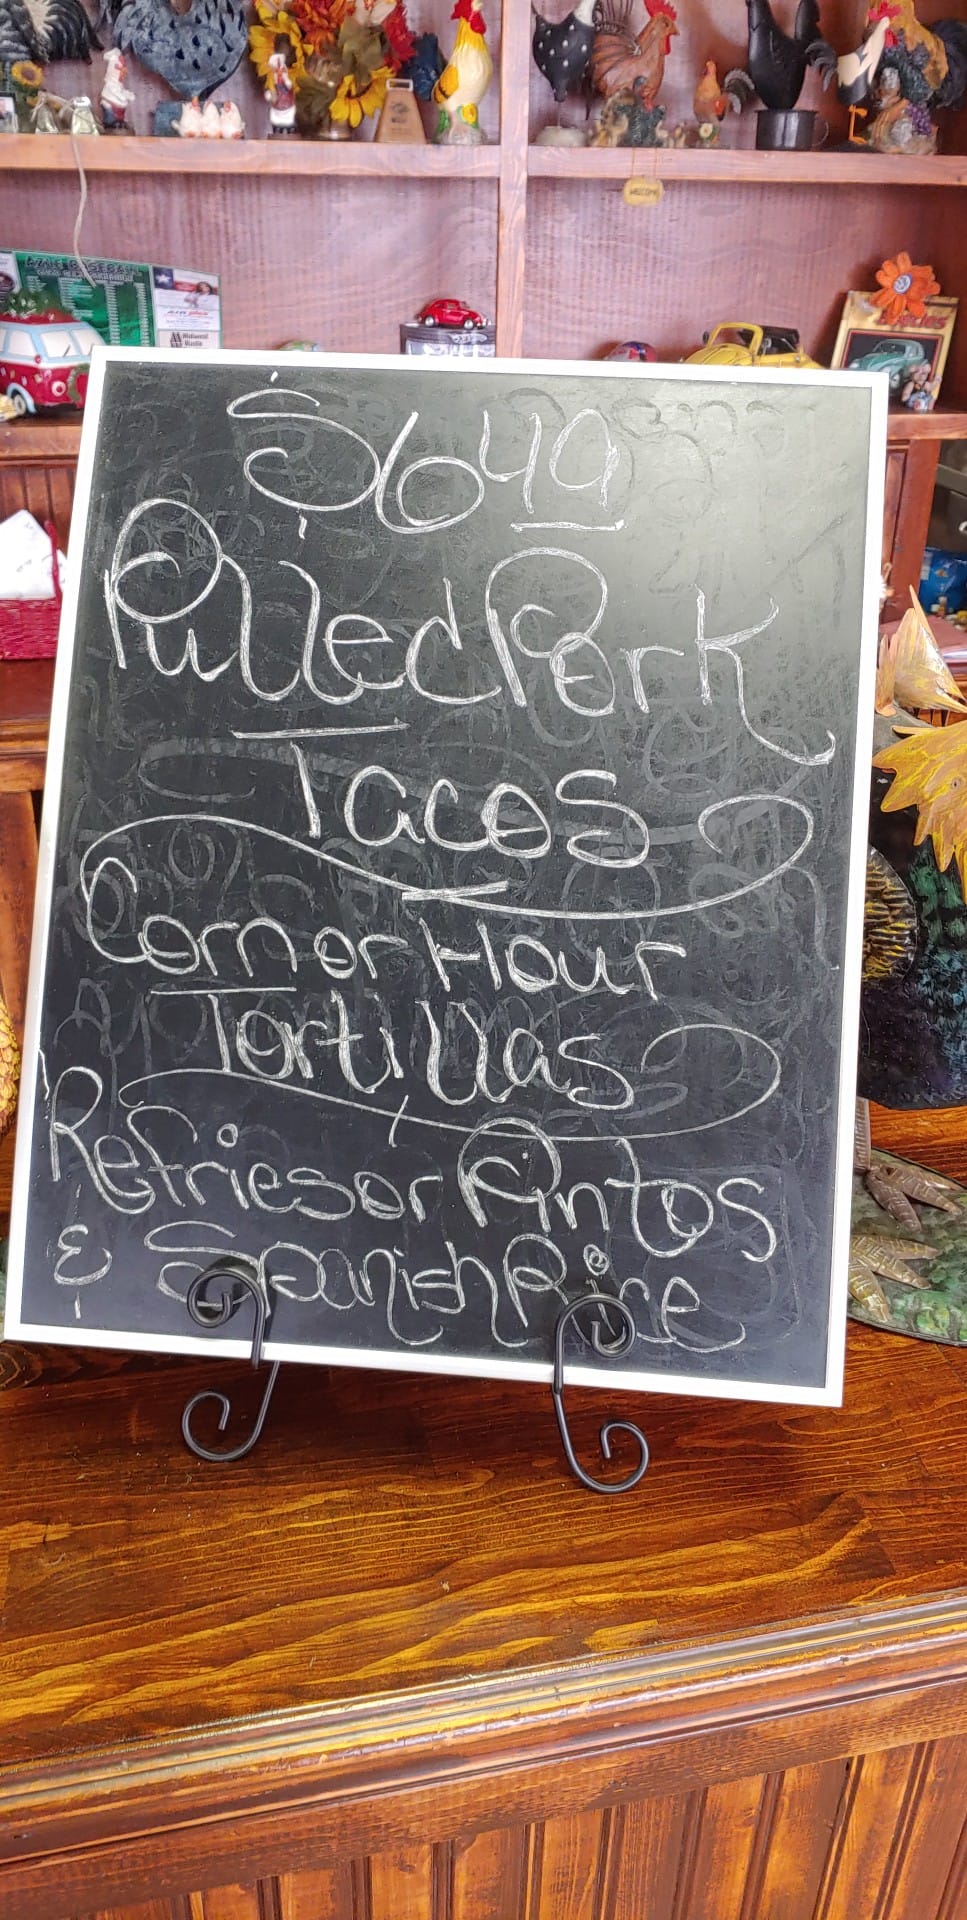 WELCOME
AZLE BASEBALL
$6 49
Pulled Pork
Tacos
Corn or Flour
Tortillas
Refries or Pintos
& Spanish Rice